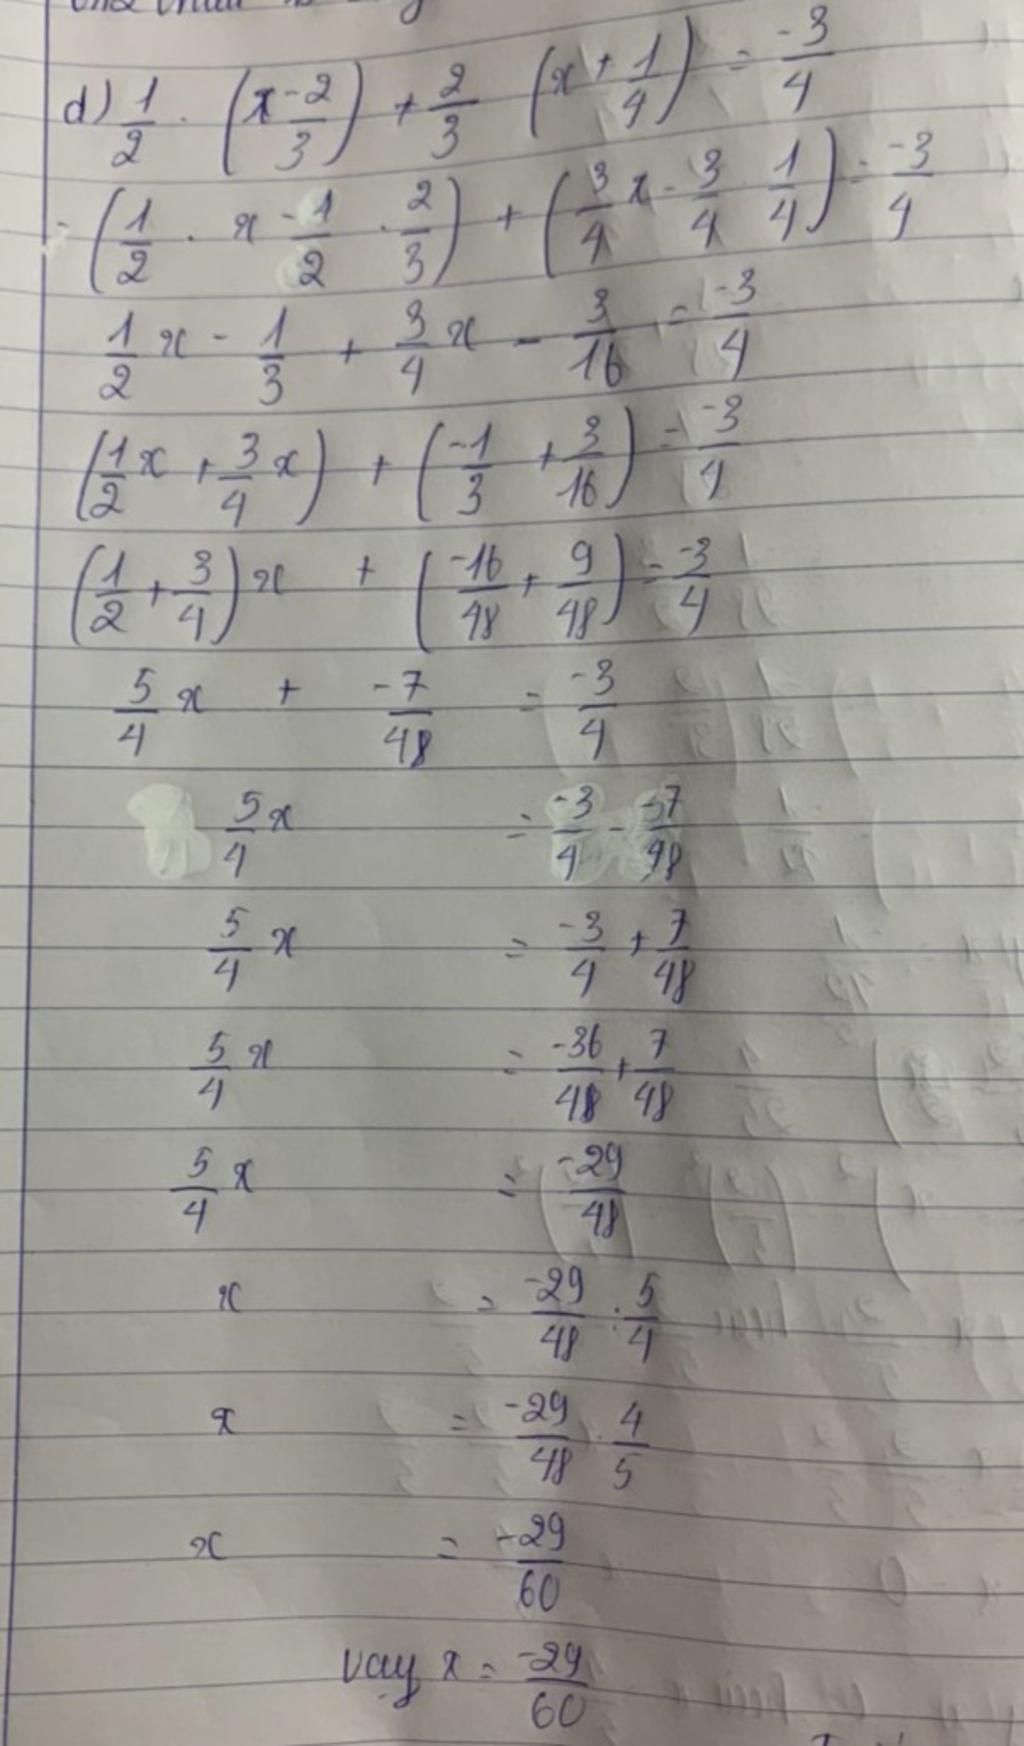 d) 1/2 . (x - 2/3) + 2/3 (x + 1/4) = -3/4
= (1/2 . x - 1/2 . 2/3) + (3/4 x - 3/4 . 1/4) = -3/4
1/2 x - 1/3 + 3/4 x - 3/16 = -3/4
(1/2 x + 3/4 x) + (-1/3 + 3/16) = -3/4
(1/2 + 3/4) x + (-16/48 + 9/48) = -3/4
5/4 x + -7/48 = -3/4
5/4 x = -3/4 - -7/48
5/4 x = -3/4 + 7/48
5/4 x = -36/48 + 7/48
5/4 x = -29/48
x = -29/48 : 5/4
x = -29/48 . 4/5
x = -29/60
vậy x = -29/60